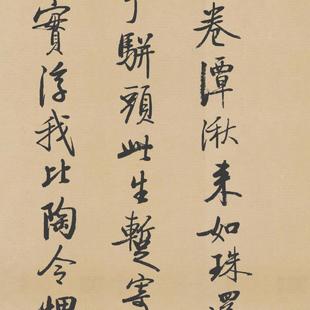 卷潭湫来如珠還
駢頭此生暫寄
實浮我比陶令